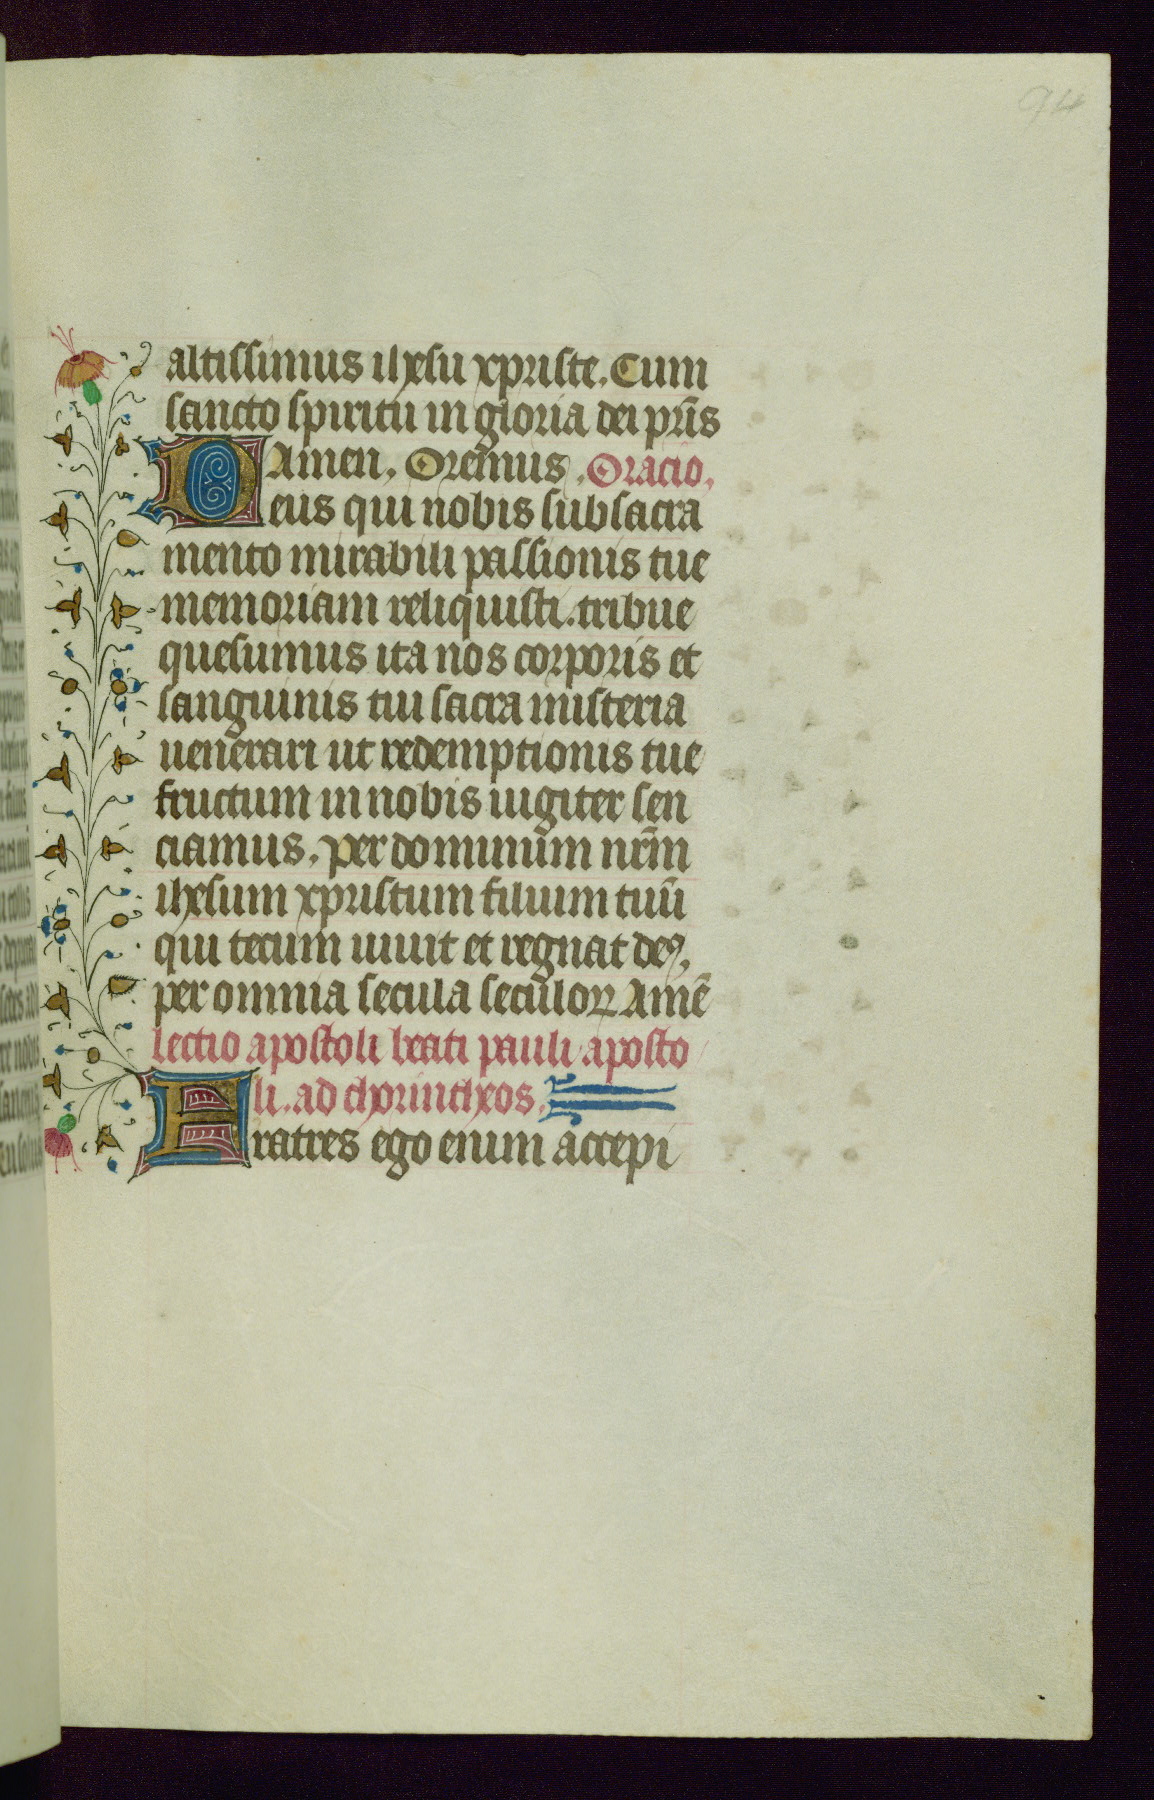 94
altissimus ihesu xpriste. Cum
sancto spiritu in gloria dei pr̄is
Amen. Oremus. Oracio.
Deus qui nobis sub sacra
mento mirabili passionis tue
memoriam reliquisti. tribue
quesumus ita nos corporis et
sanguinis tui sacra misteria
uenerari ut redemptionis tue
fructum in nobis iugiter sen
ciamus. per dominum nr̄m
ihesum xpristum filium tuū
qui tecum uiuit et regnat deꝰ.
per omnia secula seculoꝝ Amē
lectio apostoli beati pauli aposto
li. ad chorintheos.
Fratres ego enim accepi